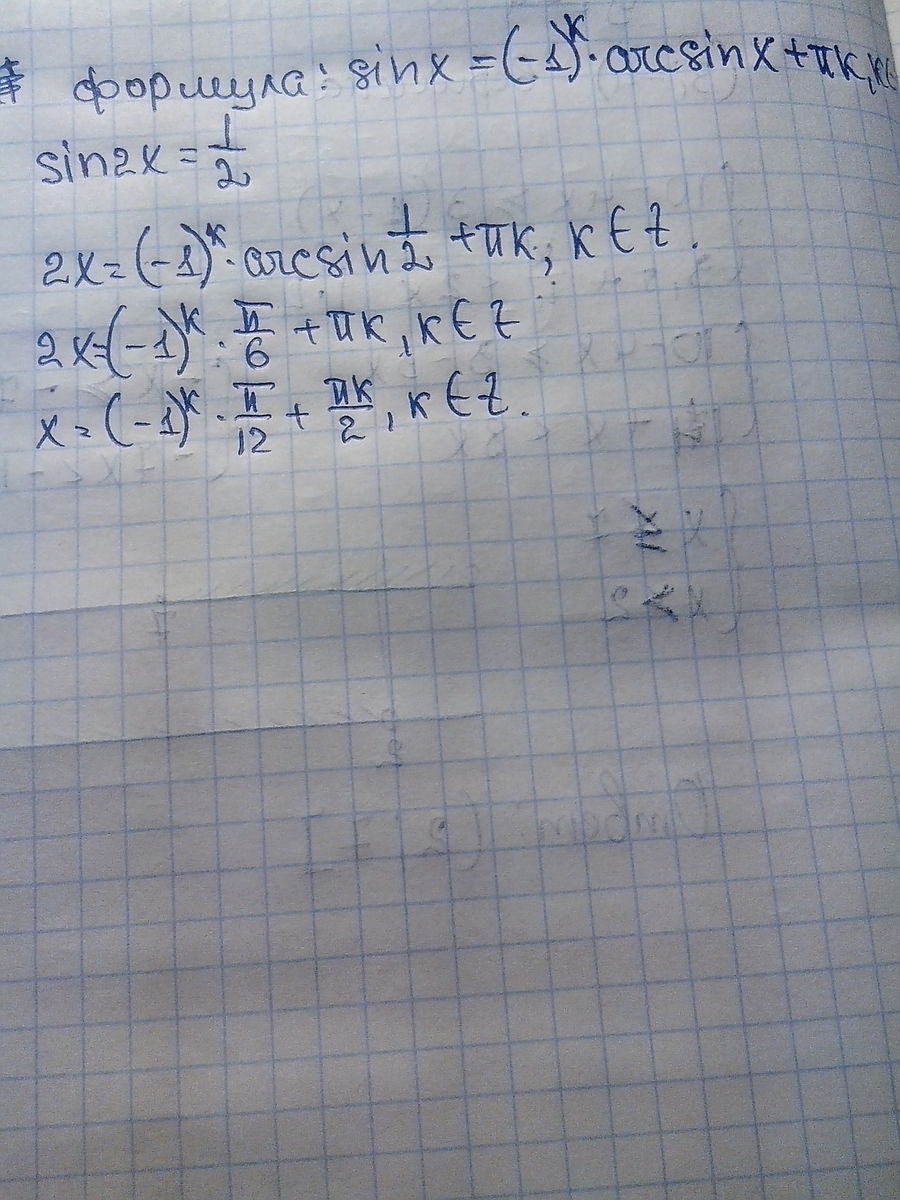 формула: sinx = (-1)^k · arcsinx + πk, k∈
sin2x = 1/2
2x = (-1)^k · arcsin 1/2 + πk, k ∈ z.
2x = (-1)^k · π/6 + πk, k ∈ z
x = (-1)^k · π/12 + πk/2, k ∈ z.